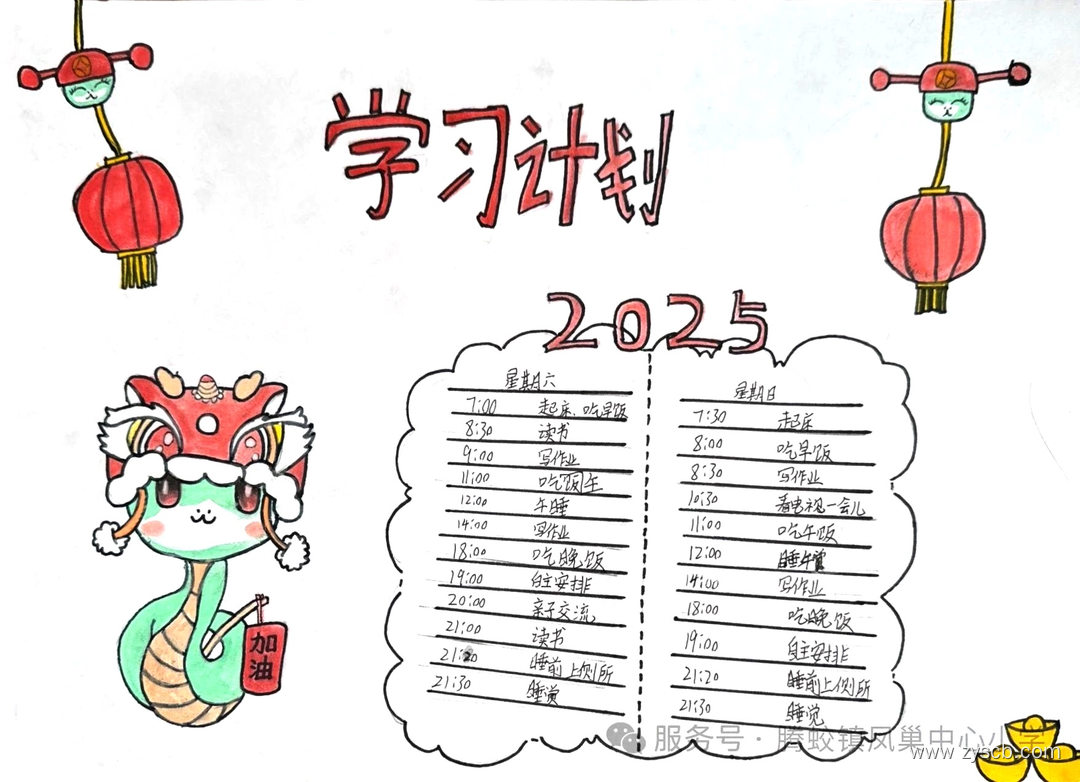 学习计划
2025
星期六
7:00 起床、吃早饭
8:30 读书
9:00 写作业
11:00 吃饭午
12:00 午睡
14:00 写作业
18:00 吃晚饭
19:00 自主安排
20:00 亲子交流
21:00 读书
21:20 睡前上侧所
21:30 睡觉
星期日
7:30 起床
8:00 吃早饭
8:30 写作业
10:30 看电视一会儿
11:00 吃午饭
12:00 睡午觉
14:00 写作业
18:00 吃晚饭
19:00 自主安排
21:20 睡前上侧所
21:30 睡觉
加油
服务号·腾蛟镇凤巢中心小学
www.zyscb.com